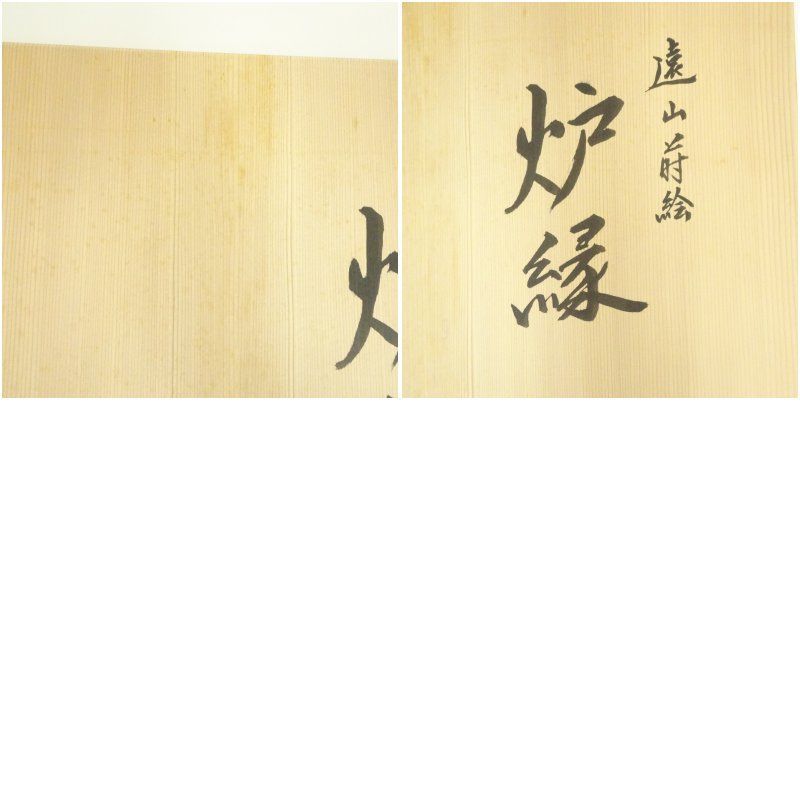 遠山蒔絵
炉縁